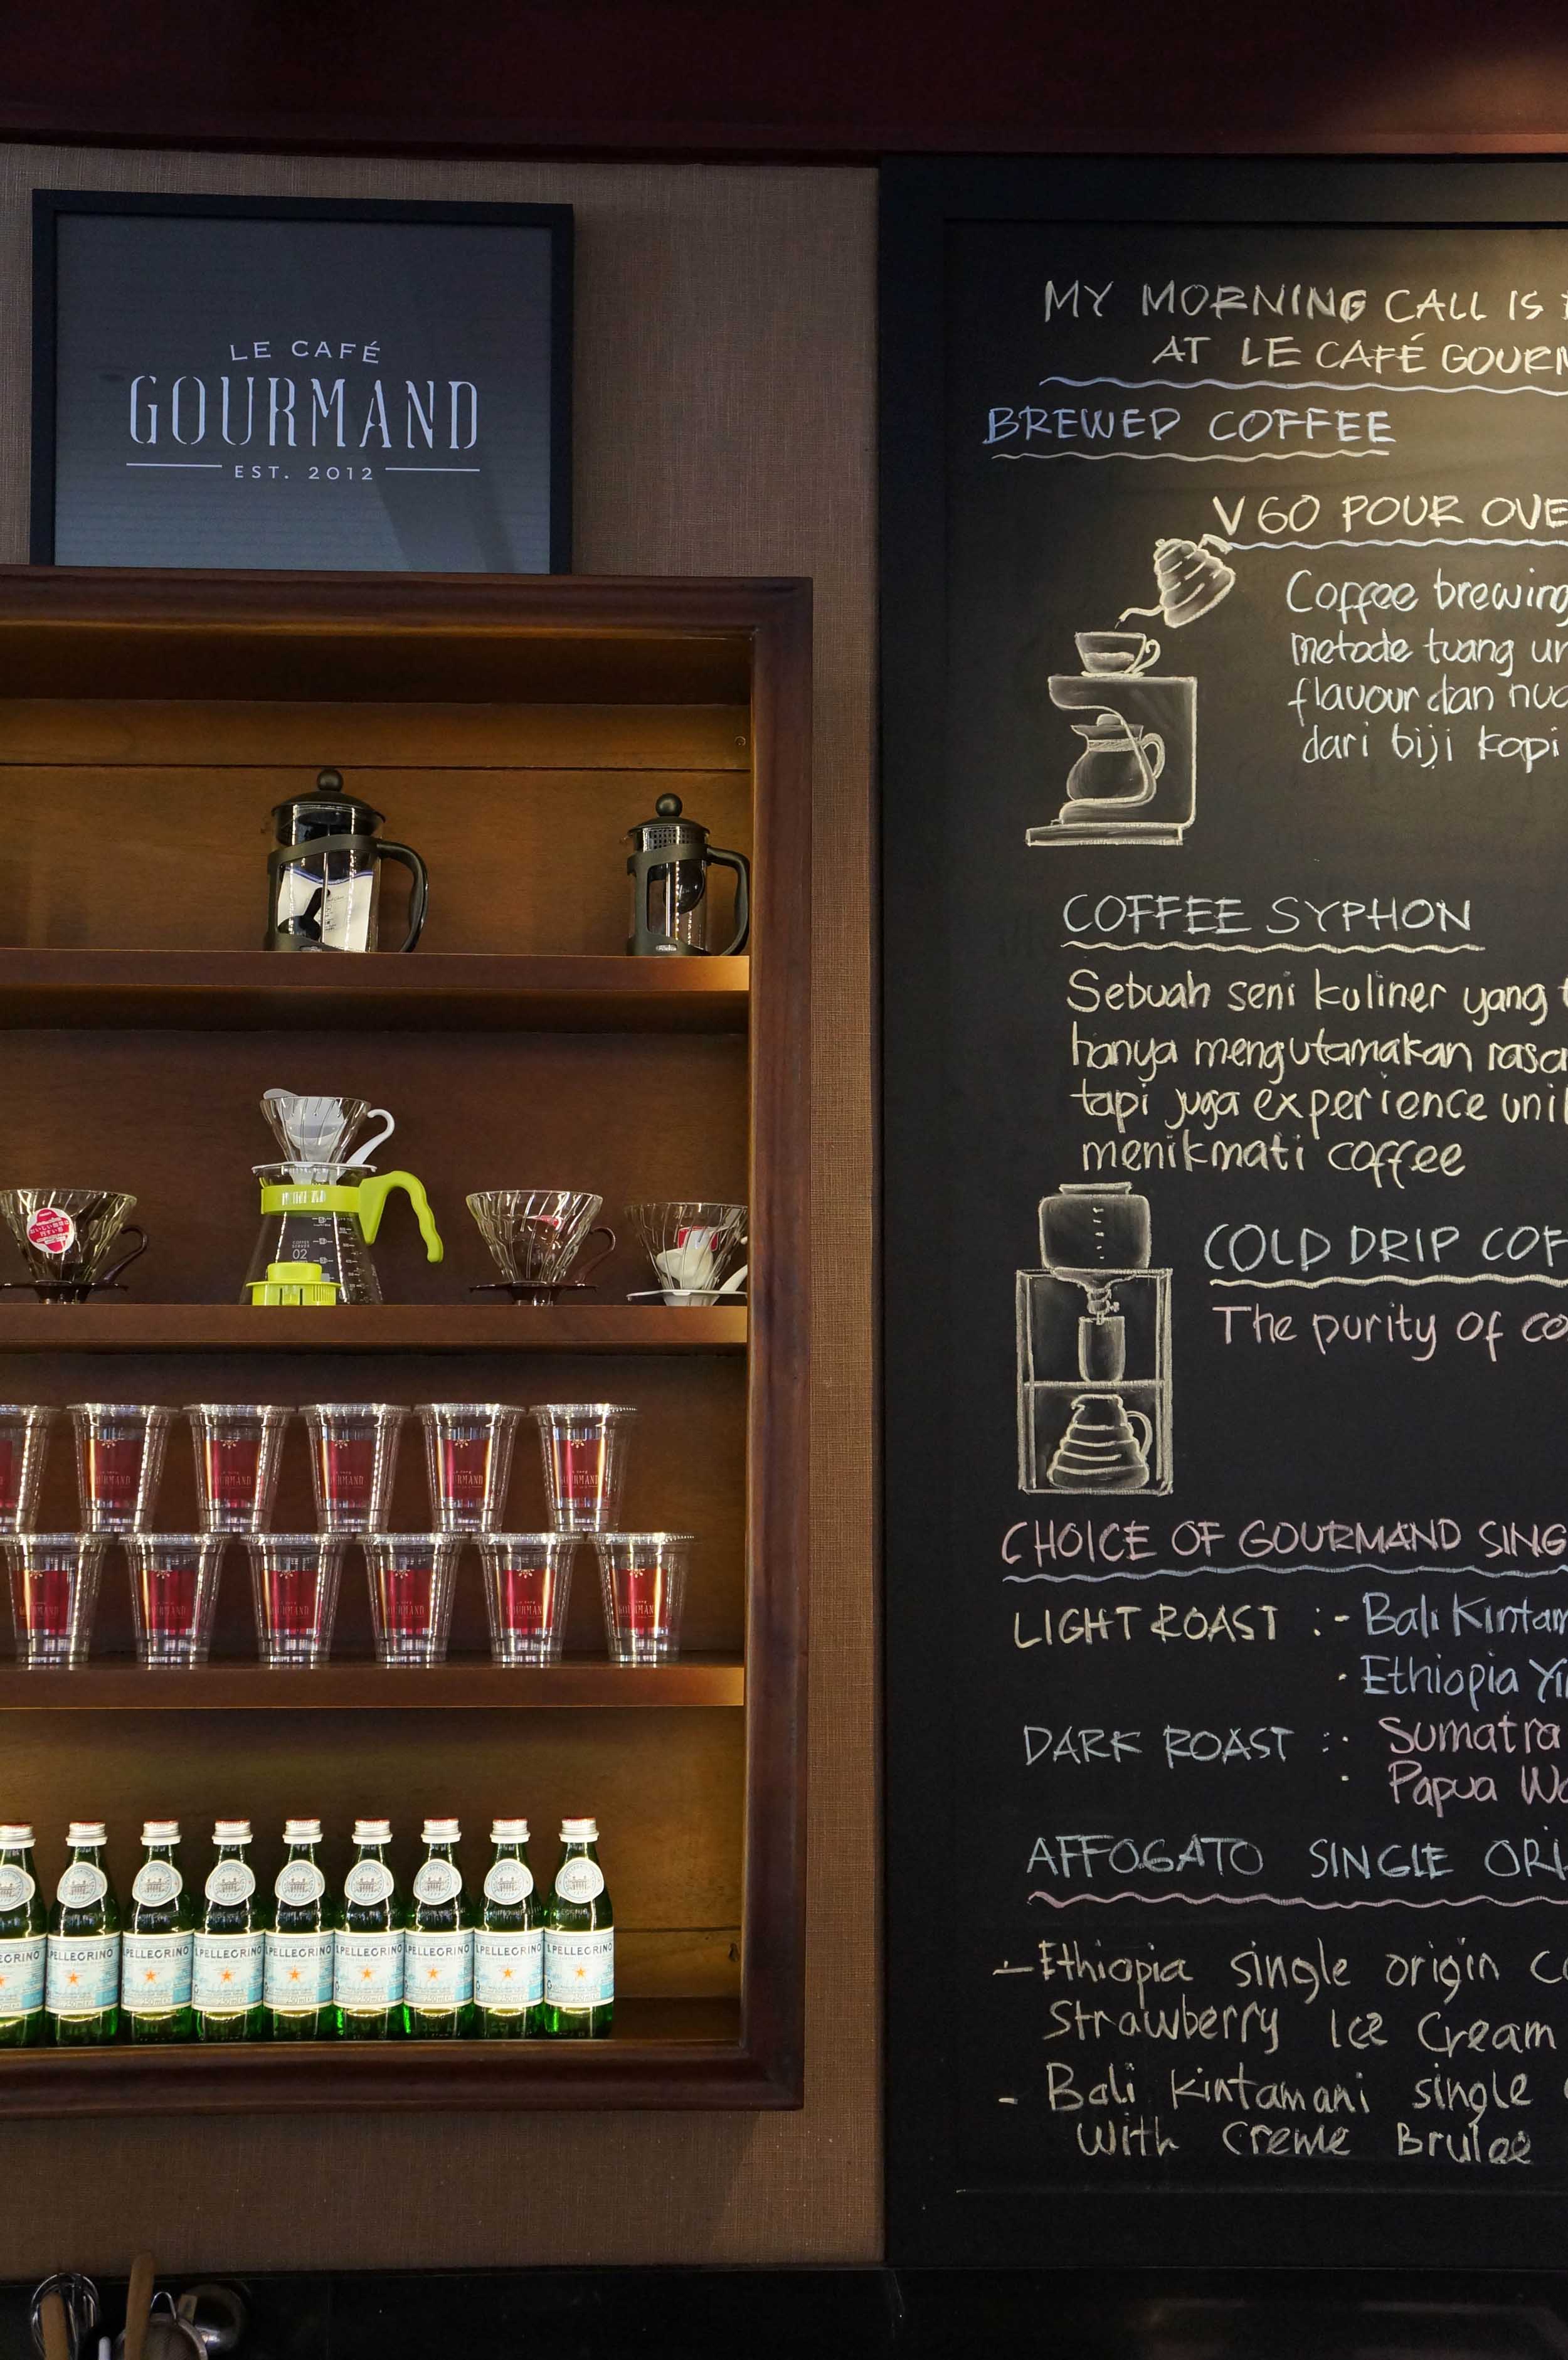 LE CAFÉ
GOURMAND
EST. 2012
MY MORNING CALL IS
AT LE CAFÉ
BREWED COFFEE
V60 POUR
Coffee brewing
metode tuang
flavour dan
dari biji kopi
COFFEE SYPHON
Sebuah seni kuliner yang
hanya mengutamakan rasa
tapi juga experience
menikmati coffee
COLD DRIP
The purity of
CHOICE OF GOURMAND
LIGHT ROAST :- Bali
- Ethiopia
DARK ROAST :- Sumatra
- Papua
AFFOGATO SINGLE
- Ethiopia single origin
Strawberry Ice Cream
- Bali Kintamani single
with Creme Brulee
02
GOURMAND
S.PELLEGRINO